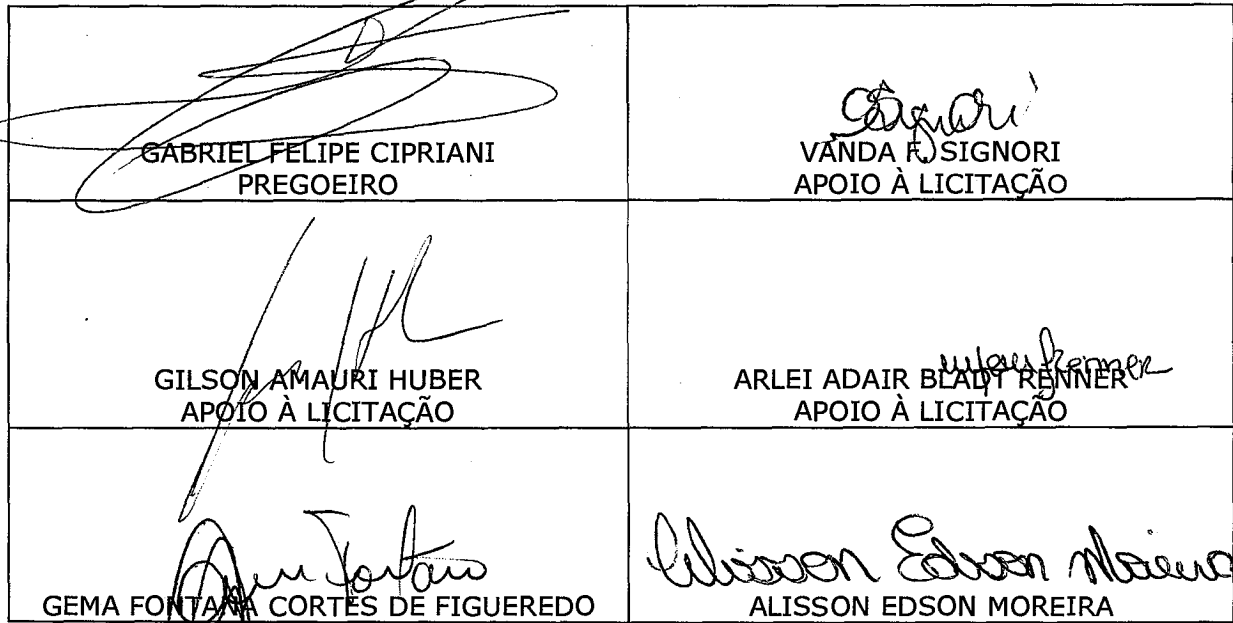 GABRIEL FELIPE CIPRIANI
PREGOEIRO
VANDA F. SIGNORI
APOIO À LICITAÇÃO
GILSON AMAURI HUBER
APOIO À LICITAÇÃO
ARLEI ADAIR BLADT RENNER
APOIO À LICITAÇÃO
GEMA FONTANA CORTES DE FIGUEREDO
Alisson Edson Moreira
ALISSON EDSON MOREIRA